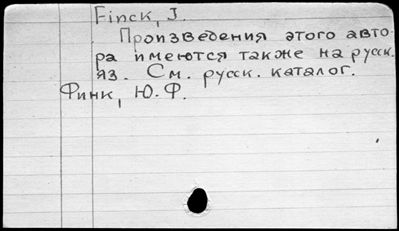 Finck, J.
Произведения этого авто-
ра имеются также на русск.
яз. См. русск. каталог.
Финк, Ю.Ф.